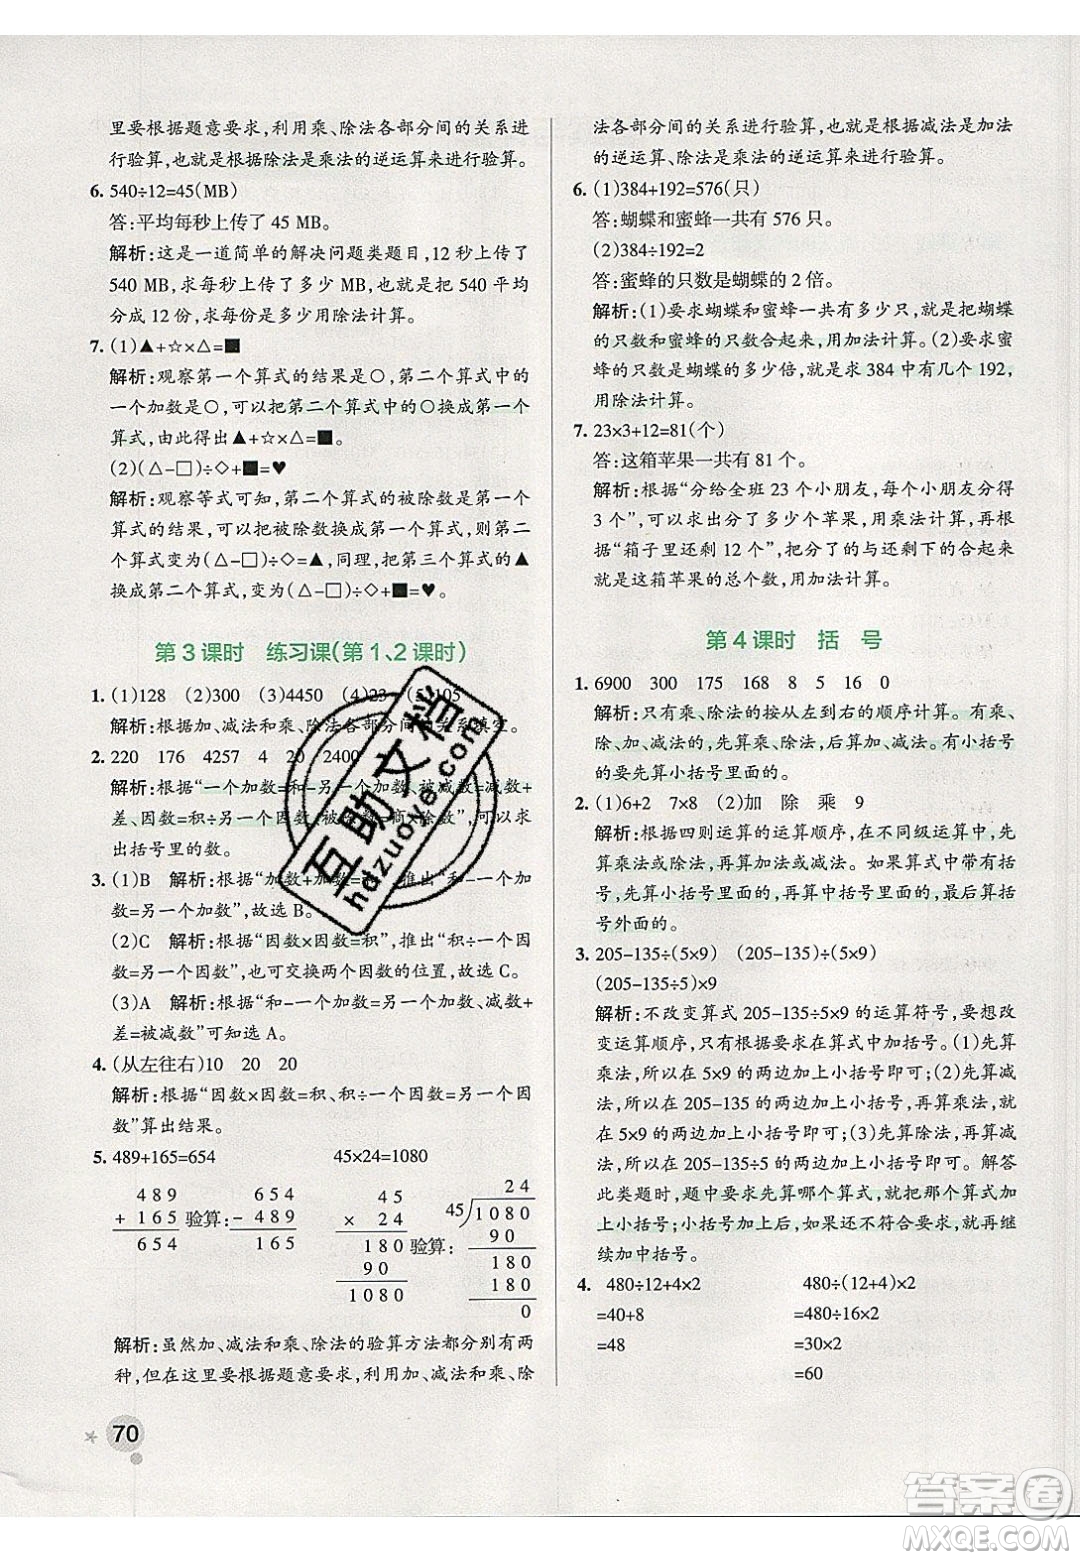 里要根据题意要求,利用乘、除法各部分间的关系进
行验算,也就是根据除法是乘法的逆运算来进行验算。
6. 540÷12=45(MB)
答:平均每秒上传了 45 MB。
解析:这是一道简单的解决问题类题目,12 秒上传了
540 MB,求每秒上传了多少 MB,就是把 540 平均
分成 12 份,求每份是多少用除法计算。
7. (1)▲+☆×△=■
解析:观察第一个算式的结果是○,第二个算式中的
一个加数是○,可以把第二个算式中的○换成第一个
算式,由此得出▲+☆×△=■。
(2)(△-□)÷◇+■=♥
解析:观察等式可知,第二个算式的被除数是第一个
算式的结果,可以把被除数换成第一个算式,则第二
个算式变为(△-□)÷◇=▲,同理,把第三个算式的▲
换成第二个算式,变为(△-□)÷◇+■=♥。
第 3 课时 练习课(第 1、2 课时)
1. (1)128 (2)300 (3)4450 (4)23 (5)105
解析:根据加、减法和乘、除法各部分间的关系填空。
2. 220 176 4257 4 20 2400
解析:根据“一个加数=和-另一个加数、被减数=减数+
差、因数=积÷另一个因数、被除数=商×除数”,可以求
出括号里的数。
3. (1)B 解析:根据“加数+加数=和”,推出“和-一个加
数=另一个加数”,故选 B。
(2)C 解析:根据“因数×因数=积”,推出“积÷一个因
数=另一个因数”,可以交换两个因数的位置,故选 C。
(3)A 解析:根据“和-一个加数=另一个加数、减数+
差=被减数”可知选 A。
4. (从左往右)10 20 20
解析:根据“因数×因数=积、积÷一个因数=另一个因
数”算出结果。
5. 489+165=654 45×24=1080
489 654 45 24
+ 165 验算: - 489 × 24 45 1080
654 165 180 验算: 90
90 180
1080 180
0
解析:虽然加、减法和乘、除法的验算方法都分别有两
种,但在这里要根据题意要求,利用加、减法和乘、除
70
法各部分间的关系进行验算,也就是根据减法是加法
的逆运算、除法是乘法的逆运算来进行验算。
6. (1)384+192=576(只)
答:蝴蝶和蜜蜂一共有 576 只。
(2)384÷192=2
答:蜜蜂的只数是蝴蝶的 2 倍。
解析:(1)要求蝴蝶和蜜蜂一共有多少只,就是把蝴蝶
的只数和蜜蜂的只数合起来,用加法计算。(2)要求蜜
蜂的只数是蝴蝶的多少倍,就是求 384 中有几个 192,
用除法计算。
7. 23×3+12=81(个)
答:这箱苹果一共有 81 个。
解析:根据“分给全班 23 个小朋友,每个小朋友分得
3 个”,可以求出分了多少个苹果,用乘法计算,再根
据“箱子里还剩 12 个”,把分了的与还剩下的合起来
就是这箱苹果的总个数,用加法计算。
第 4 课时 括 号
1. 6900 300 175 168 8 5 16 0
解析:只有乘、除法的按从左到右的顺序计算。有乘、
除、加、减法的,先算乘、除法,后算加、减法。有小括号
的要先算小括号里面的。
2. (1)6+2 7×8 (2)加 除 乘 9
解析:根据四则运算的运算顺序,在不同级运算中,先
算乘法或除法,再算加法或减法。如果算式中带有括
号,先算小括号里面的,再算中括号里面的,最后算括
号外面的。
3. 205-135÷(5×9) (205-135)÷(5×9)
(205-135÷5)×9
解析:不改变算式 205-135÷5×9 的运算符号,要想改
变运算顺序,只有根据要求在算式中加括号。(1)先算
乘法,所以在 5×9 的两边加上小括号即可;(2)先算减
法,所以在 205-135 的两边加上小括号,再算乘法,
在 5×9 的两边加上小括号即可;(3)先算除法,再算减
法,所以在 205-135÷5 的两边加上小括号即可。解答
此类题时,题中要求先算哪个算式,就把那个算式加
上小括号;小括号加上后,如果还不符合要求,就再继
续加中括号。
4. 480÷12+4×2 480÷(12+4)×2
=40+8 =480÷16×2
=48 =30×2
=60
互助文档
hdzuoye.com
答案圈
MXQE.COM